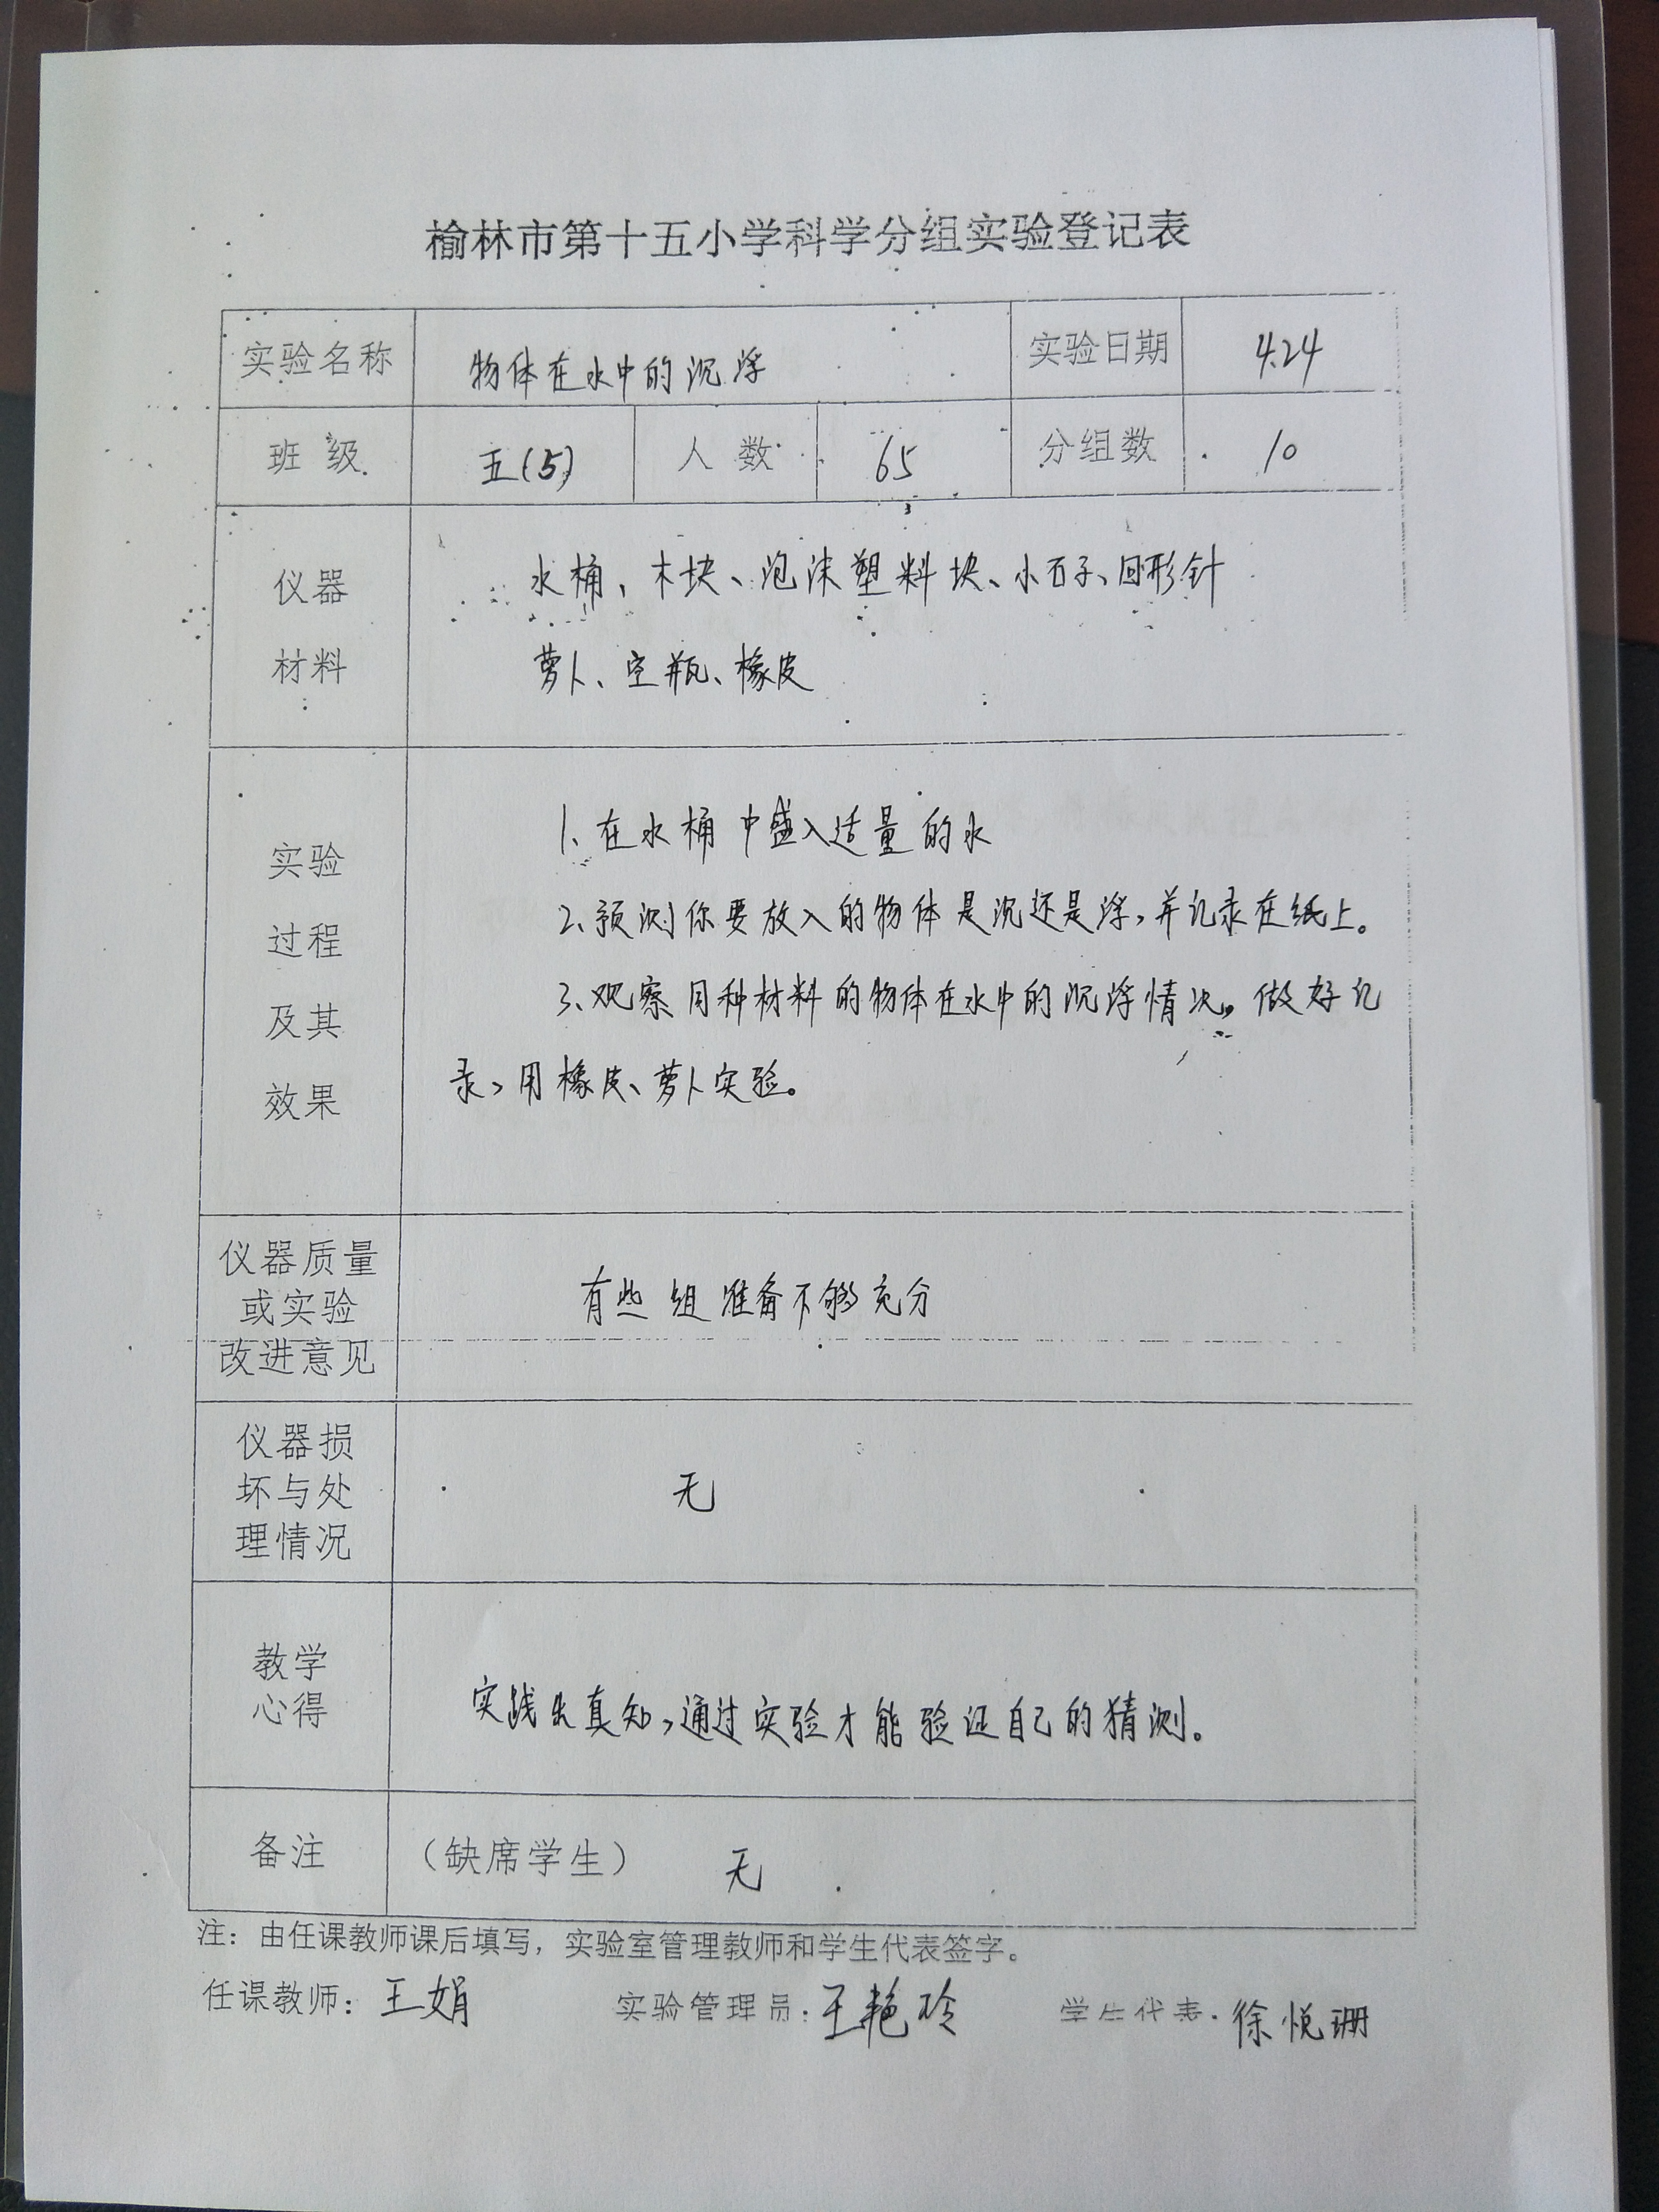 榆林市第十五小学科学分组实验登记表
实验名称 物体在水中的沉浮 实验日期 4.24
班级 五(5) 人数 65 分组数 10
仪器 水桶、木块、泡沫塑料块、小石子、回形针
材料 萝卜、空瓶、橡皮
1、在水桶中盛入适量的水
实验
2、预测你要放入的物体是沉还是浮,并记录在纸上。
过程
3、观察同种材料的物体在水中的沉浮情况。做好记
及其
录,用橡皮、萝卜实验。
效果
仪器质量
或实验 有些组准备不够充分
改进意见
仪器损
坏与处 无
理情况
教学
心得 实践出真知,通过实验才能验证自己的猜测。
备注 (缺席学生) 无
注:由任课教师课后填写,实验室管理教师和学生代表签字。
任课教师:王娟 实验管理员:王艳玲 学生代表:徐悦珊